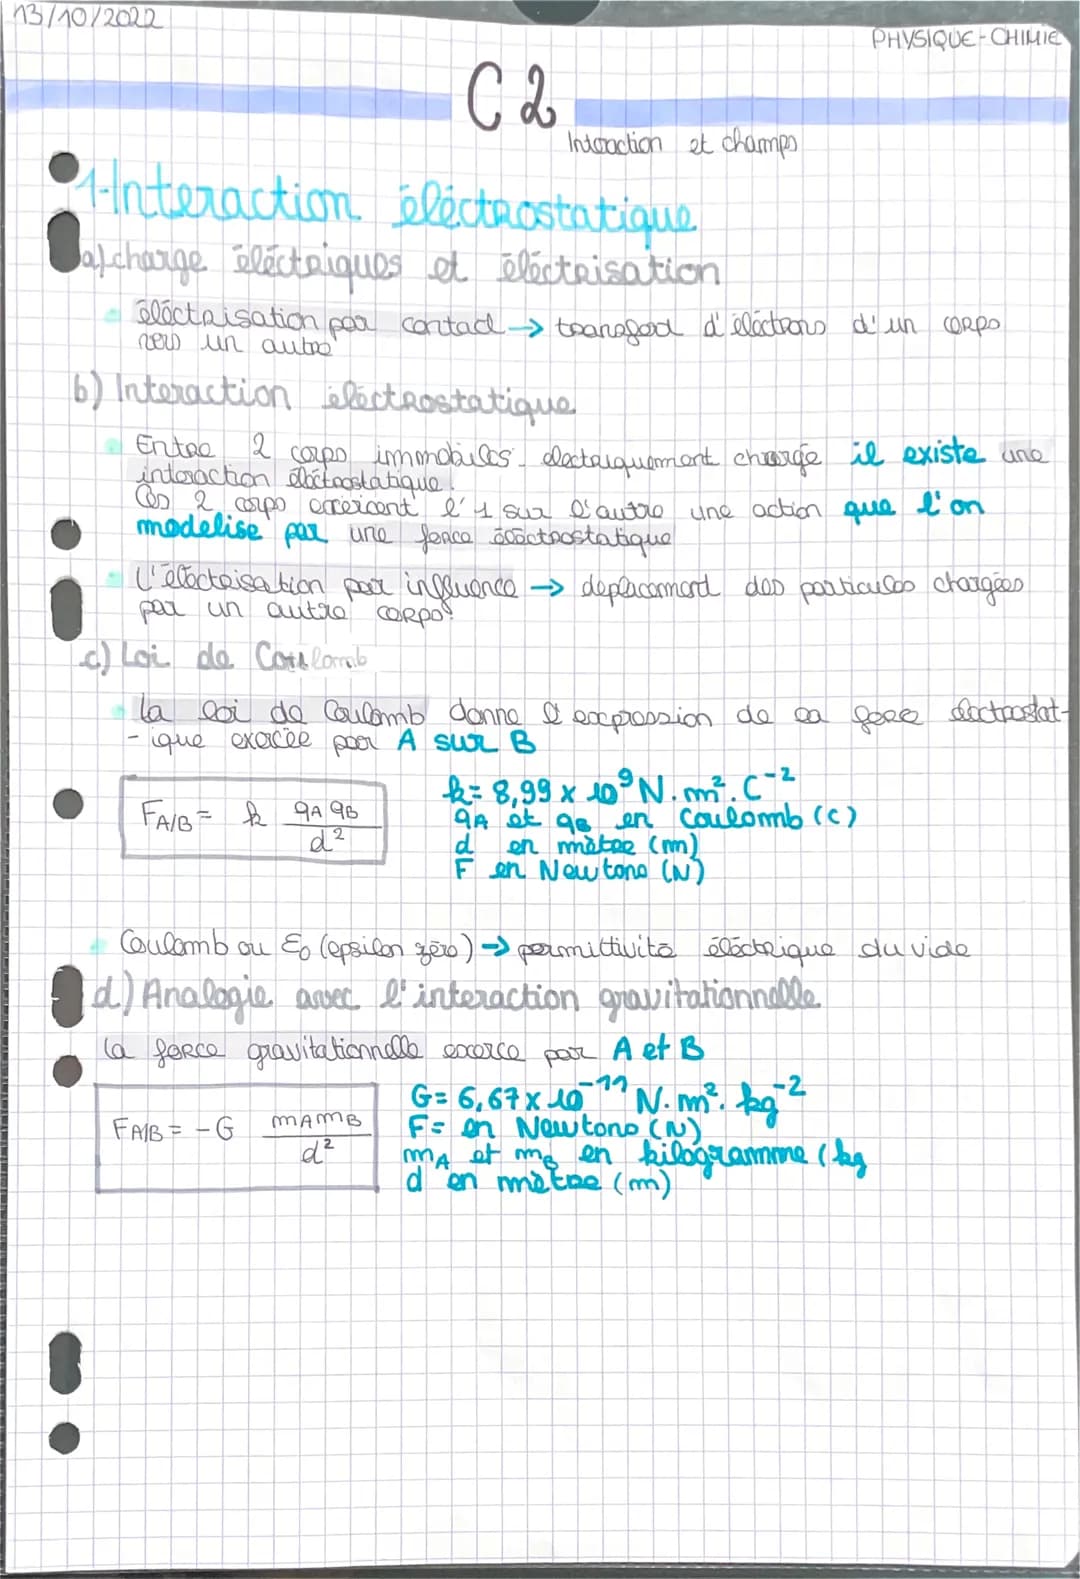 13/10/2022
PHYSIQUE-CHIMIE
C2
Interaction et champs
1-Interaction éléctrostatique
a) charge éléctriques et éléctrisation
éléctrisation par contact → transfert d'éléctrons d'un corps
vers un autre
b) Interaction éléctrostatique
Entre 2 corps immobiles électriquement chargé il existe une
interaction éléctrostatique.
Ces 2 corps exercent l'1 sur l'autre une action que l'on
modelise par une force éléctrostatique
L'éléctrisation par influence → deplacement des particules chargées
par un autre corps.
c) Loi de Coulomb
la loi de Coulomb donne l'expression de la force électrostat-
-ique exercée par A sur B
F_{A/B} = k \frac{q_A q_B}{d^2}
k = 8,99 × 10⁹ N.m².C⁻²
qA et qB en Coulomb (C)
d en mètre (m)
F en Newtons (N)
Coulomb ou ε₀ (epsilon zéro) → permittivité éléctrique du vide
d) Analogie avec l'interaction gravitationnelle
la force gravitationnelle exerce par A et B
F_{A/B} = -G \frac{m_A m_B}{d^2}
G = 6,67 × 10⁻¹¹ N.m².kg⁻²
F = en Newtons (N)
mA et mB en kilogramme (kg
d en mètre (m)